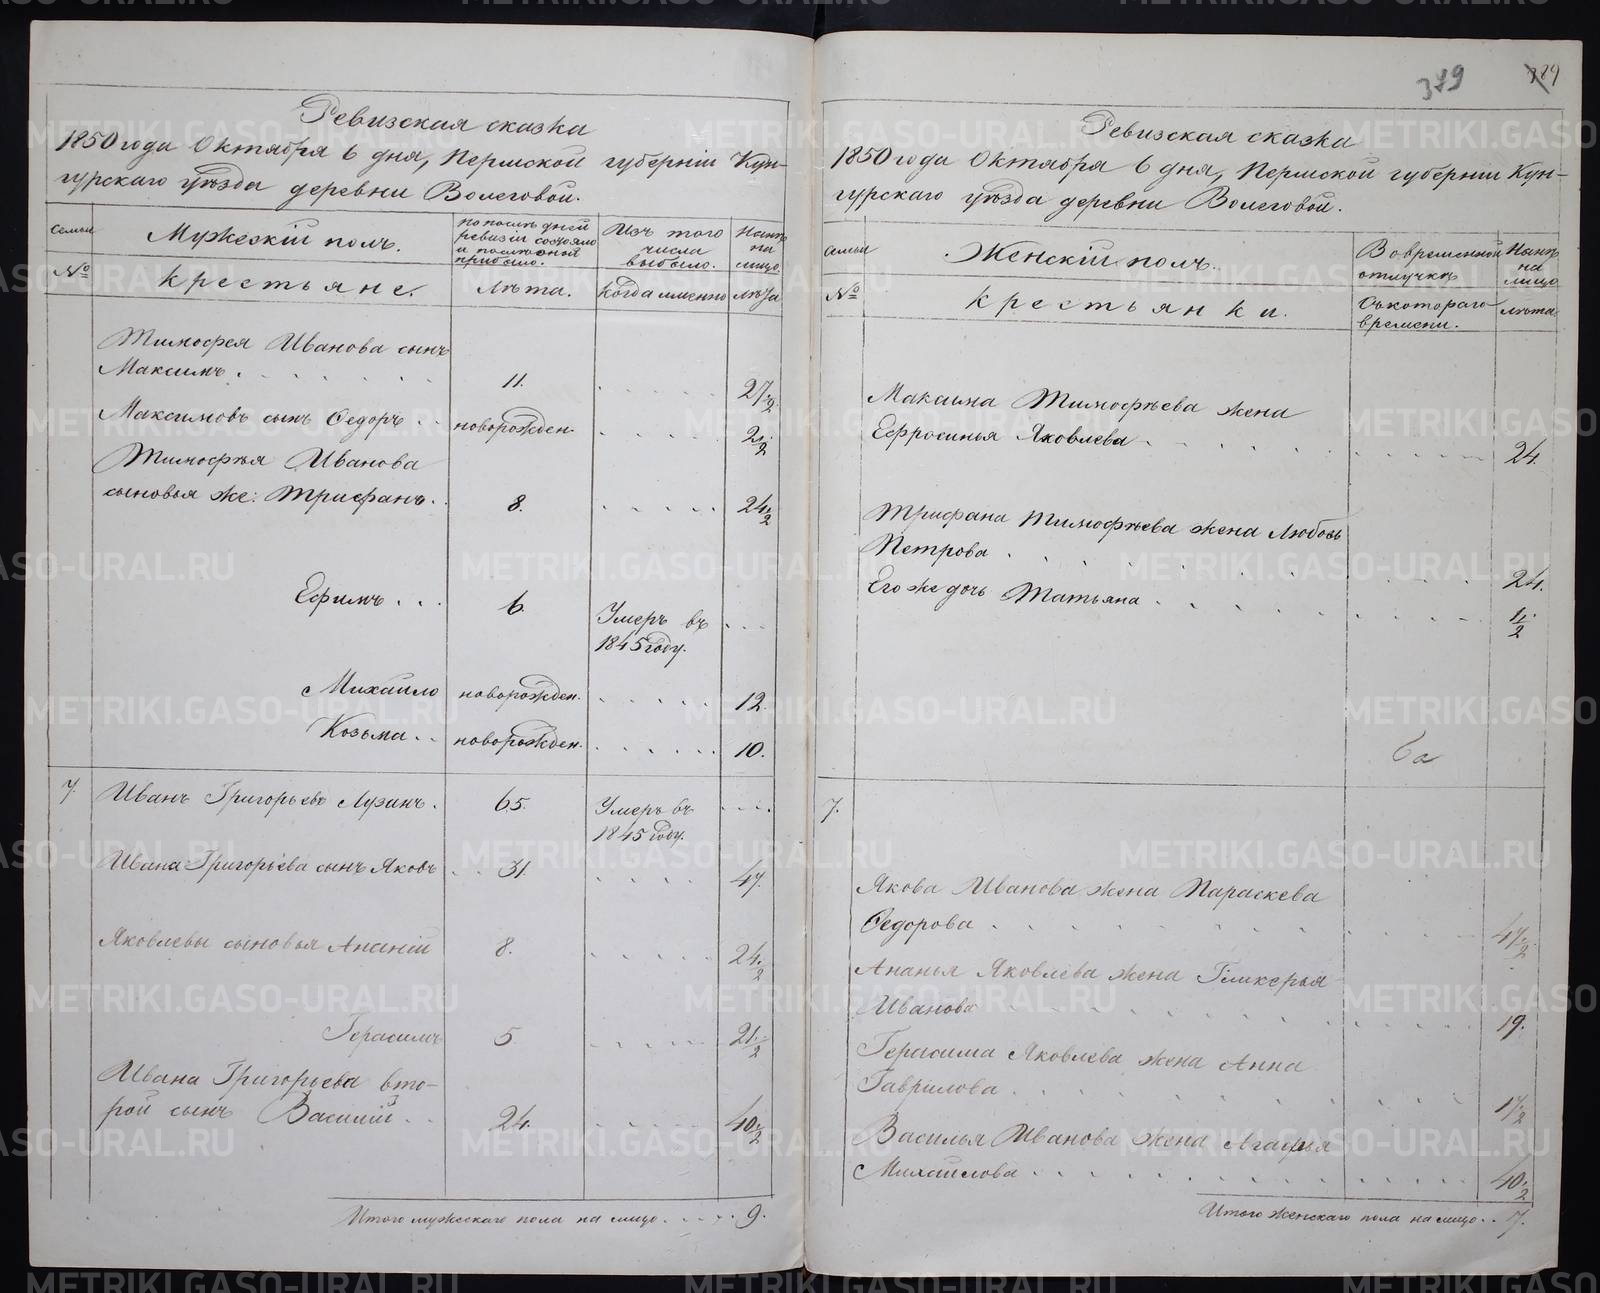 Ревизская сказка
1850 года Октября 6 дня, Пермской губернiи Кун-
гурскаго уѣзда деревни Волеговой.
Семьи
Мужескiй полъ.
По послѣдней
ревизiи состояло
и послѣ оной
прибыло.
Изъ того
числа
выбыло.
Нынѣ
на
лицо.
№
крестьяне.
Лѣта.
Когда именно
лѣта
Тимофея Иванова сынъ
Максимъ . . . . . . 11. . . . . 27 1/2
Максимовъ сынъ Ѳедоръ . . новорожден. . . . . 2 1/2
Тимофѣя Иванова
сыновья же: Трифанъ . . 8. . . . . . 24 1/2
Ефимъ . . . 6. Умеръ въ . . .
1845 году.
Михаило новорожден. . . . . . 12.
Козьма . . новорожден. . . . . . 10.
7. Иванъ Григорьевъ Лузинъ. 65. Умеръ въ . . . .
1845 году.
Ивана Григорьева сынъ Яковъ . . 31. . . . . 47.
Яковлевы сыновья Ананiй 8. . . . . . 24 1/2
Герасимъ 5 . . . . . 21 1/2
Ивана Григорьева вто-
рой сынъ Василiй . . 24. . . . . . 40 1/2
Итого мужескаго пола на лицо . . . . . 9.
379
Ревизская сказка
1850 года Октября 6 дня, Пермской губернiи Кун-
гурскаго уѣзда деревни Волеговой.
Семьи
Женскiй полъ.
Во временной
отлучкѣ
Нынѣ
на
лицо
№
крестьянки.
Съ котораго
времени.
лѣта
Максима Тимофѣева жена
Ефросинья Яковлева . . . . . . . . . . 24.
Трифана Тимофѣева жена Любовь
Петрова . . . . . . . . . . 24.
Его же дочь Татьяна . . . . . . . . . . 1/2
6а
7.
Якова Иванова жена Параскева
Ѳедорова . . . . . . . . . . 47 1/2
Ананья Яковлева жена Гликерья
Иванова . . . . . . . . . . 19.
Герасима Яковлева жена Анна
Гаврилова . . . . . . . . . . 17 1/2
Василья Иванова жена Агафья
Михайлова . . . . . . . . . . 40 1/2
Итого женскаго пола на лицо . . 7.
METRIKI.GASO-URAL.RU